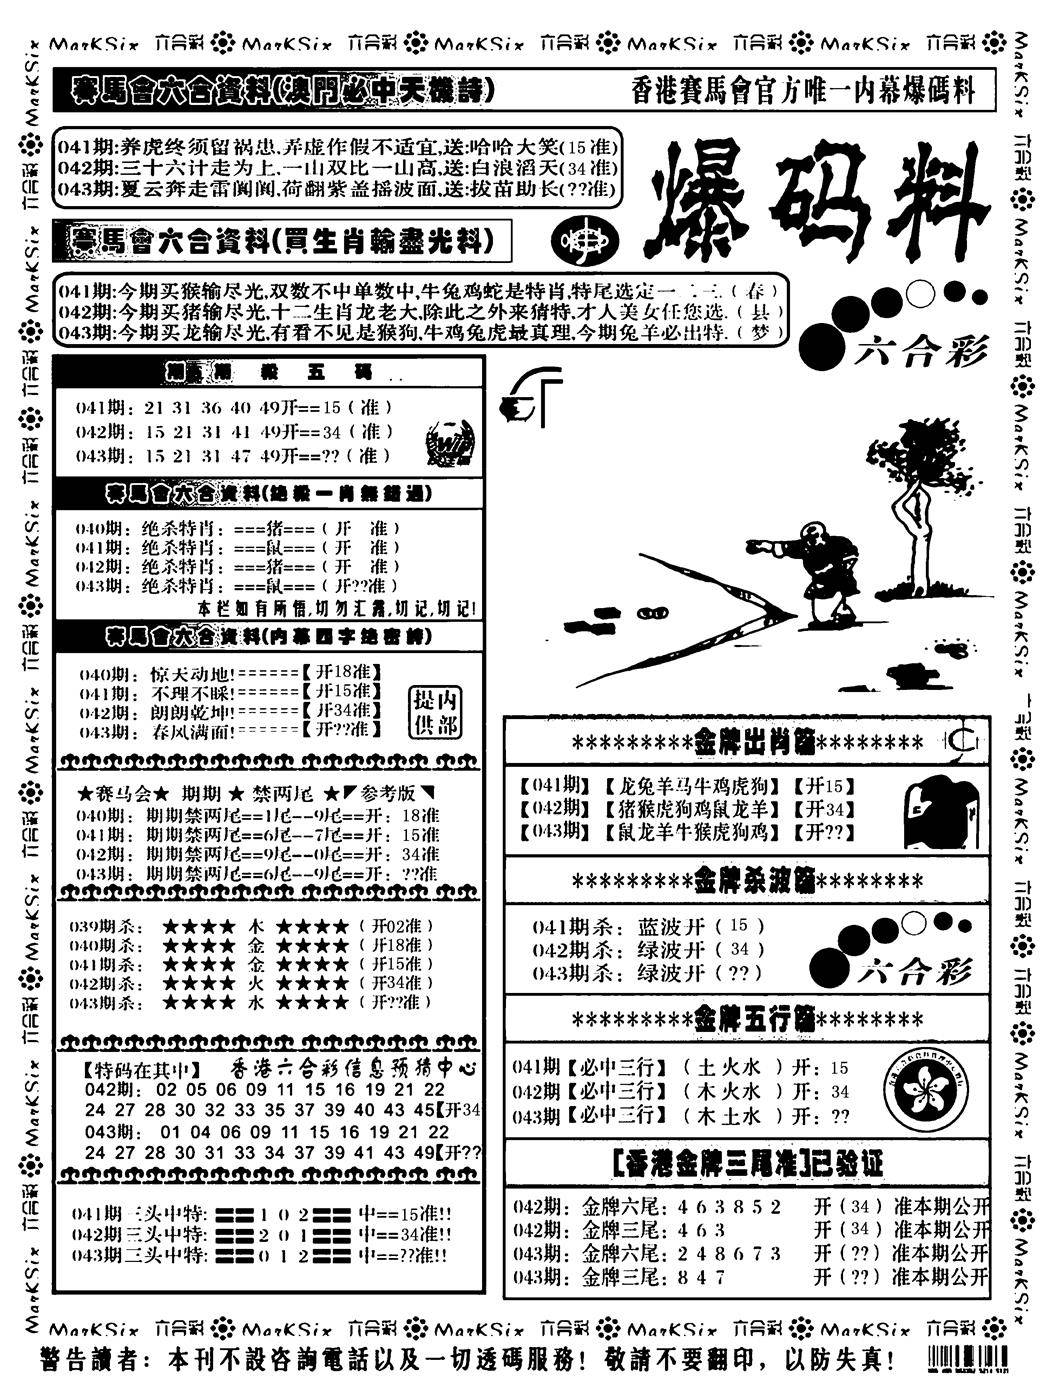 MarKSix 六合彩 MarKSix 六合彩 MarKSix 六合彩 MarKSix 六合彩 MarKSix 六合彩
賽馬會六合資料(澳門必中天機詩)
香港賽馬會官方唯一内幕爆碼料
041期:养虎终须留祸患.弄虚作假不适宜,送:哈哈大笑(15准)
042期:三十六计走为上.一山双比一山高,送:白浪滔天(34准)
043期:夏云奔走雷阗阗,荷翻紫盖摇波面,送:拔苗助长(??准)
爆码料
賽馬會六合資料(買生肖輸盡光料)
041期:今期买猴输尽光,双数不中单数中,牛兔鸡蛇是特肖,特尾选定一二三.(春)
042期:今期买猪输尽光,十二生肖龙老大,除此之外来猜特,才人美女任您选.(县)
043期:今期买龙输尽光,有看不见是猴狗,牛鸡兔虎最真理,今期兔羊必出特.(梦)
六合彩
期期殺五碼
041期: 21 31 36 40 49开==15(准)
042期: 15 21 31 41 49开==34(准)
043期: 15 21 31 47 49开==??(准)
賽馬會六合資料(绝殺一肖無錯過)
040期: 绝杀特肖: ===猪===( 开 准 )
041期: 绝杀特肖: ===鼠===( 开 准 )
042期: 绝杀特肖: ===猪===( 开 准 )
043期: 绝杀特肖: ===鼠===( 开??准 )
本栏如有所悟,切勿汇露,切记,切记!
賽馬會六合資料(内幕四字绝密詩)
040期: 惊天动地!======【开18准】
041期: 不理不睬!======【开15准】
042期: 朗朗乾坤!======【开34准】
043期: 春风满面!======【开??准】
提内
供部
★赛马会★ 期期 ★ 禁两尾 ★◤参考版◥
040期: 期期禁两尾==1尾--9尾==开: 18准
041期: 期期禁两尾==6尾--7尾==开: 15准
042期: 期期禁两尾==9尾--0尾==开: 34准
043期: 期期禁两尾==6尾--9尾==开: ??准
039期杀: ★★★★ 木 ★★★★ ( 开02准 )
040期杀: ★★★★ 金 ★★★★ ( 开18准 )
041期杀: ★★★★ 金 ★★★★ ( 开15准 )
042期杀: ★★★★ 火 ★★★★ ( 开34准 )
043期杀: ★★★★ 水 ★★★★ ( 开??准 )
【特码在其中】 香港六合彩信息预猜中心
042期: 02 05 06 09 11 15 16 19 21 22
24 27 28 30 32 33 35 37 39 40 43 45【开34
043期: 01 04 06 09 11 15 16 19 21 22
24 27 28 30 31 32 34 37 39 41 43 49【开??
041期三头中特: 〓〓1 0 2〓〓 中==15准!!
042期三头中特: 〓〓2 0 1〓〓 中==34准!!
043期三头中特: 〓〓0 1 2〓〓 中==??准!!
*********金牌出肖篇********
【041期】【龙兔羊马牛鸡虎狗】【开15】
【042期】【猪猴虎狗鸡鼠龙羊】【开34】
【043期】【鼠龙羊牛猴虎狗鸡】【开??】
*********金牌杀波篇********
041期杀: 蓝波开( 15 )
042期杀: 绿波开( 34 )
043期杀: 绿波开( ?? )
六合彩
*********金牌五行篇********
041期【必中三行】( 土 火水 ) 开: 15
042期【必中三行】( 木 火水 ) 开: 34
043期【必中三行】( 木 土水 ) 开: ??
[香港金牌三尾准]已验证
042期: 金牌六尾: 4 6 3 8 5 2 开( 34 ) 准本期公开
042期: 金牌三尾: 4 6 3 开( 34 ) 准本期公开
043期: 金牌六尾: 2 4 8 6 7 3 开( ?? ) 准本期公开
043期: 金牌三尾: 8 4 7 开( ?? ) 准本期公开
MarKSix 六合彩 MarKSix 六合彩 MarKSix 六合彩 MarKSix 六合彩 MarKSix 六合彩
警告讀者: 本刊不設咨詢電話以及一切透碼服務! 敬請不要翻印, 以防失真!